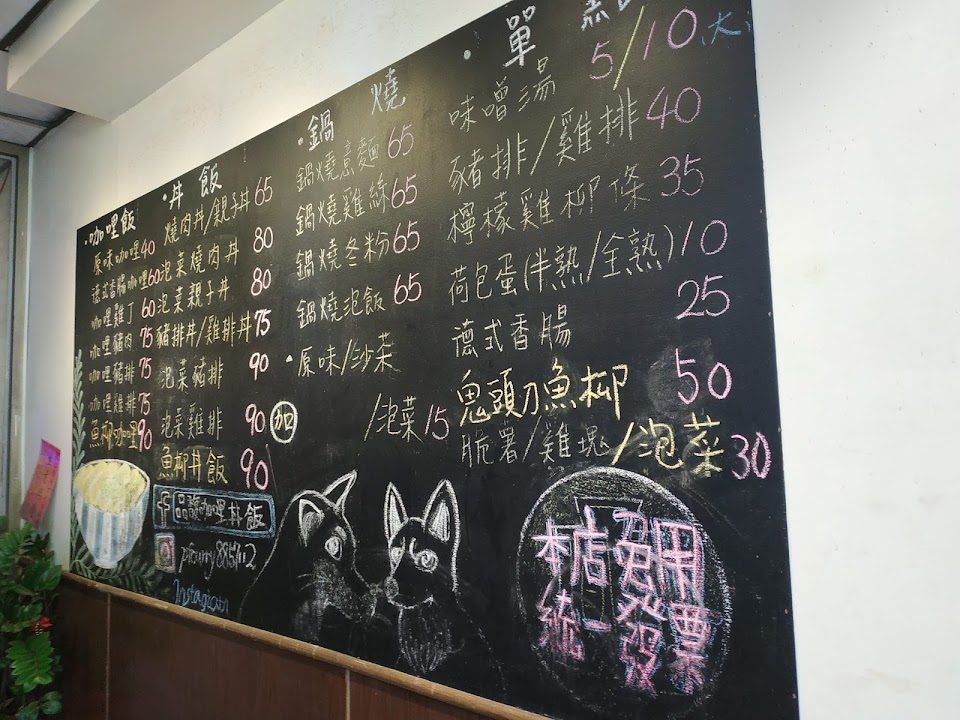 咖哩飯
原味咖哩 40
德式香腸咖哩 60
咖哩雞丁 60
咖哩豬肉 75
咖哩豬排 75
咖哩雞排 75
魚柳咖哩 90
丼飯
燒肉丼/親子丼 65
泡菜燒肉丼 80
泡菜親子丼 80
豬排丼/雞排丼 75
泡菜豬排 90
泡菜雞排 90
魚柳丼飯 90
鍋燒
鍋燒意麵 65
鍋燒雞絲 65
鍋燒冬粉 65
鍋燒泡飯 65
原味/沙茶
加 /泡菜 15
單
味噌湯 5/10 大
豬排/雞排 40
檸檬雞柳條 35
荷包蛋(半熟/全熟) 10
德式香腸 25
鬼頭刀魚柳 50
脆薯/雞塊/泡菜 30
咖哩丼飯
Instagram
本店
統一
發票